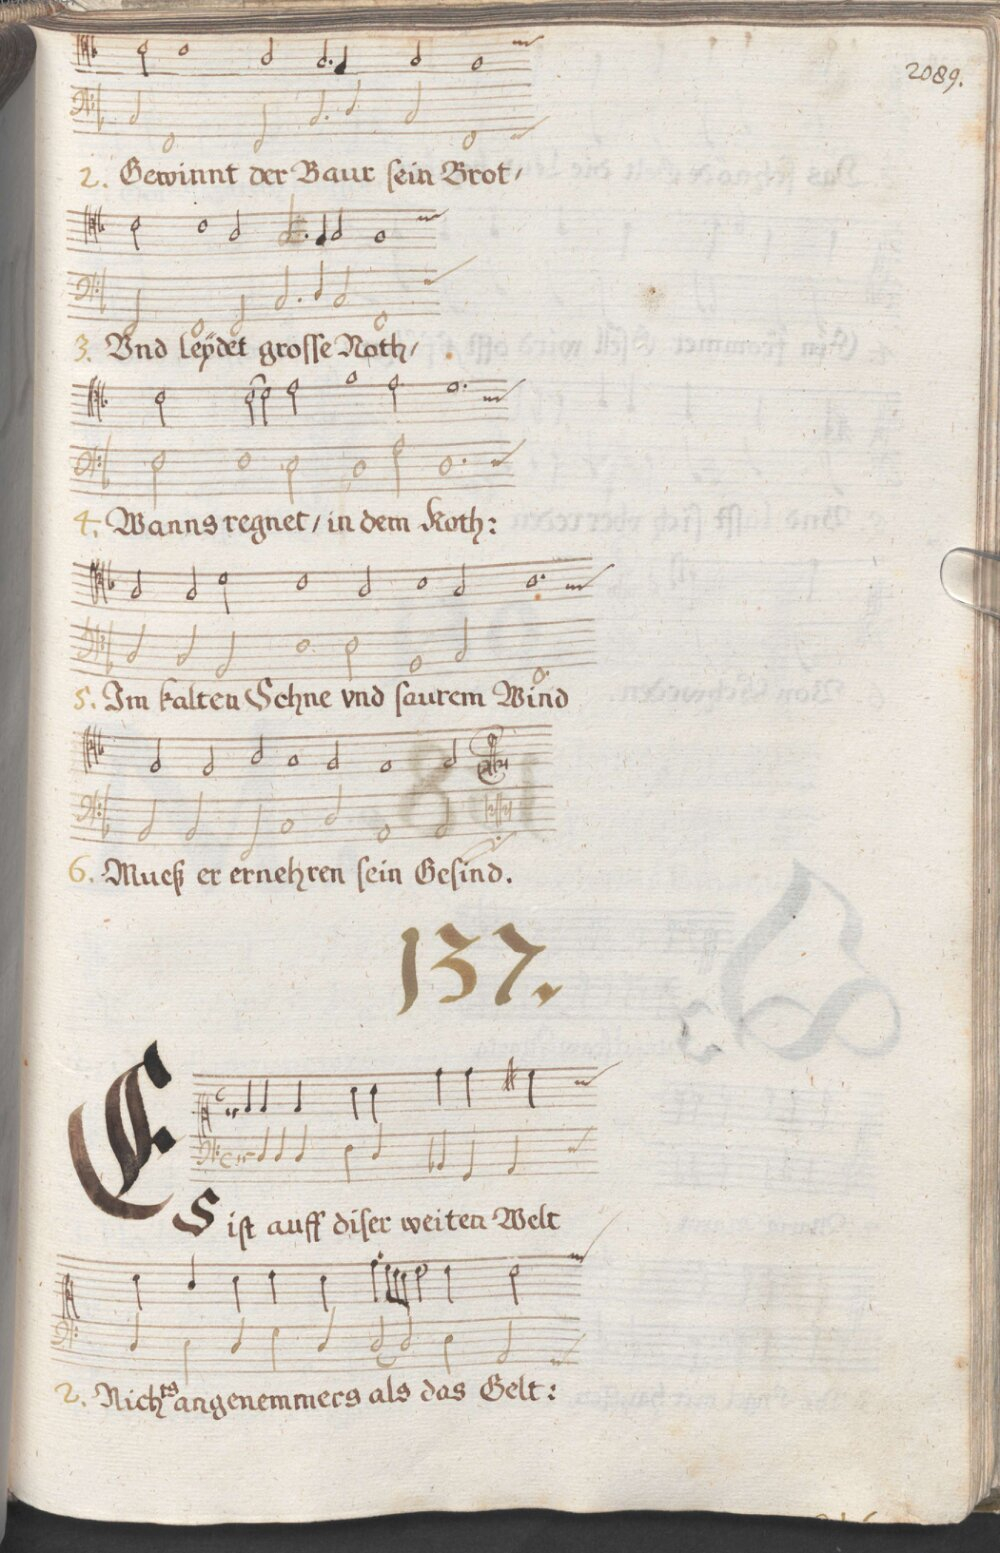 2089.
2. Gewinnt der Baur sein Brot/
3. Vnd leÿdet grosse Noth/
4. Wanns regnet/ in dem Koth:
5. Im kalten Schne vnd saurem Wind
6. Mueß er ernehren sein Gesind.
137.
ES ist auff diser weiten Welt
2. Nichts angenemmers als das Gelt: